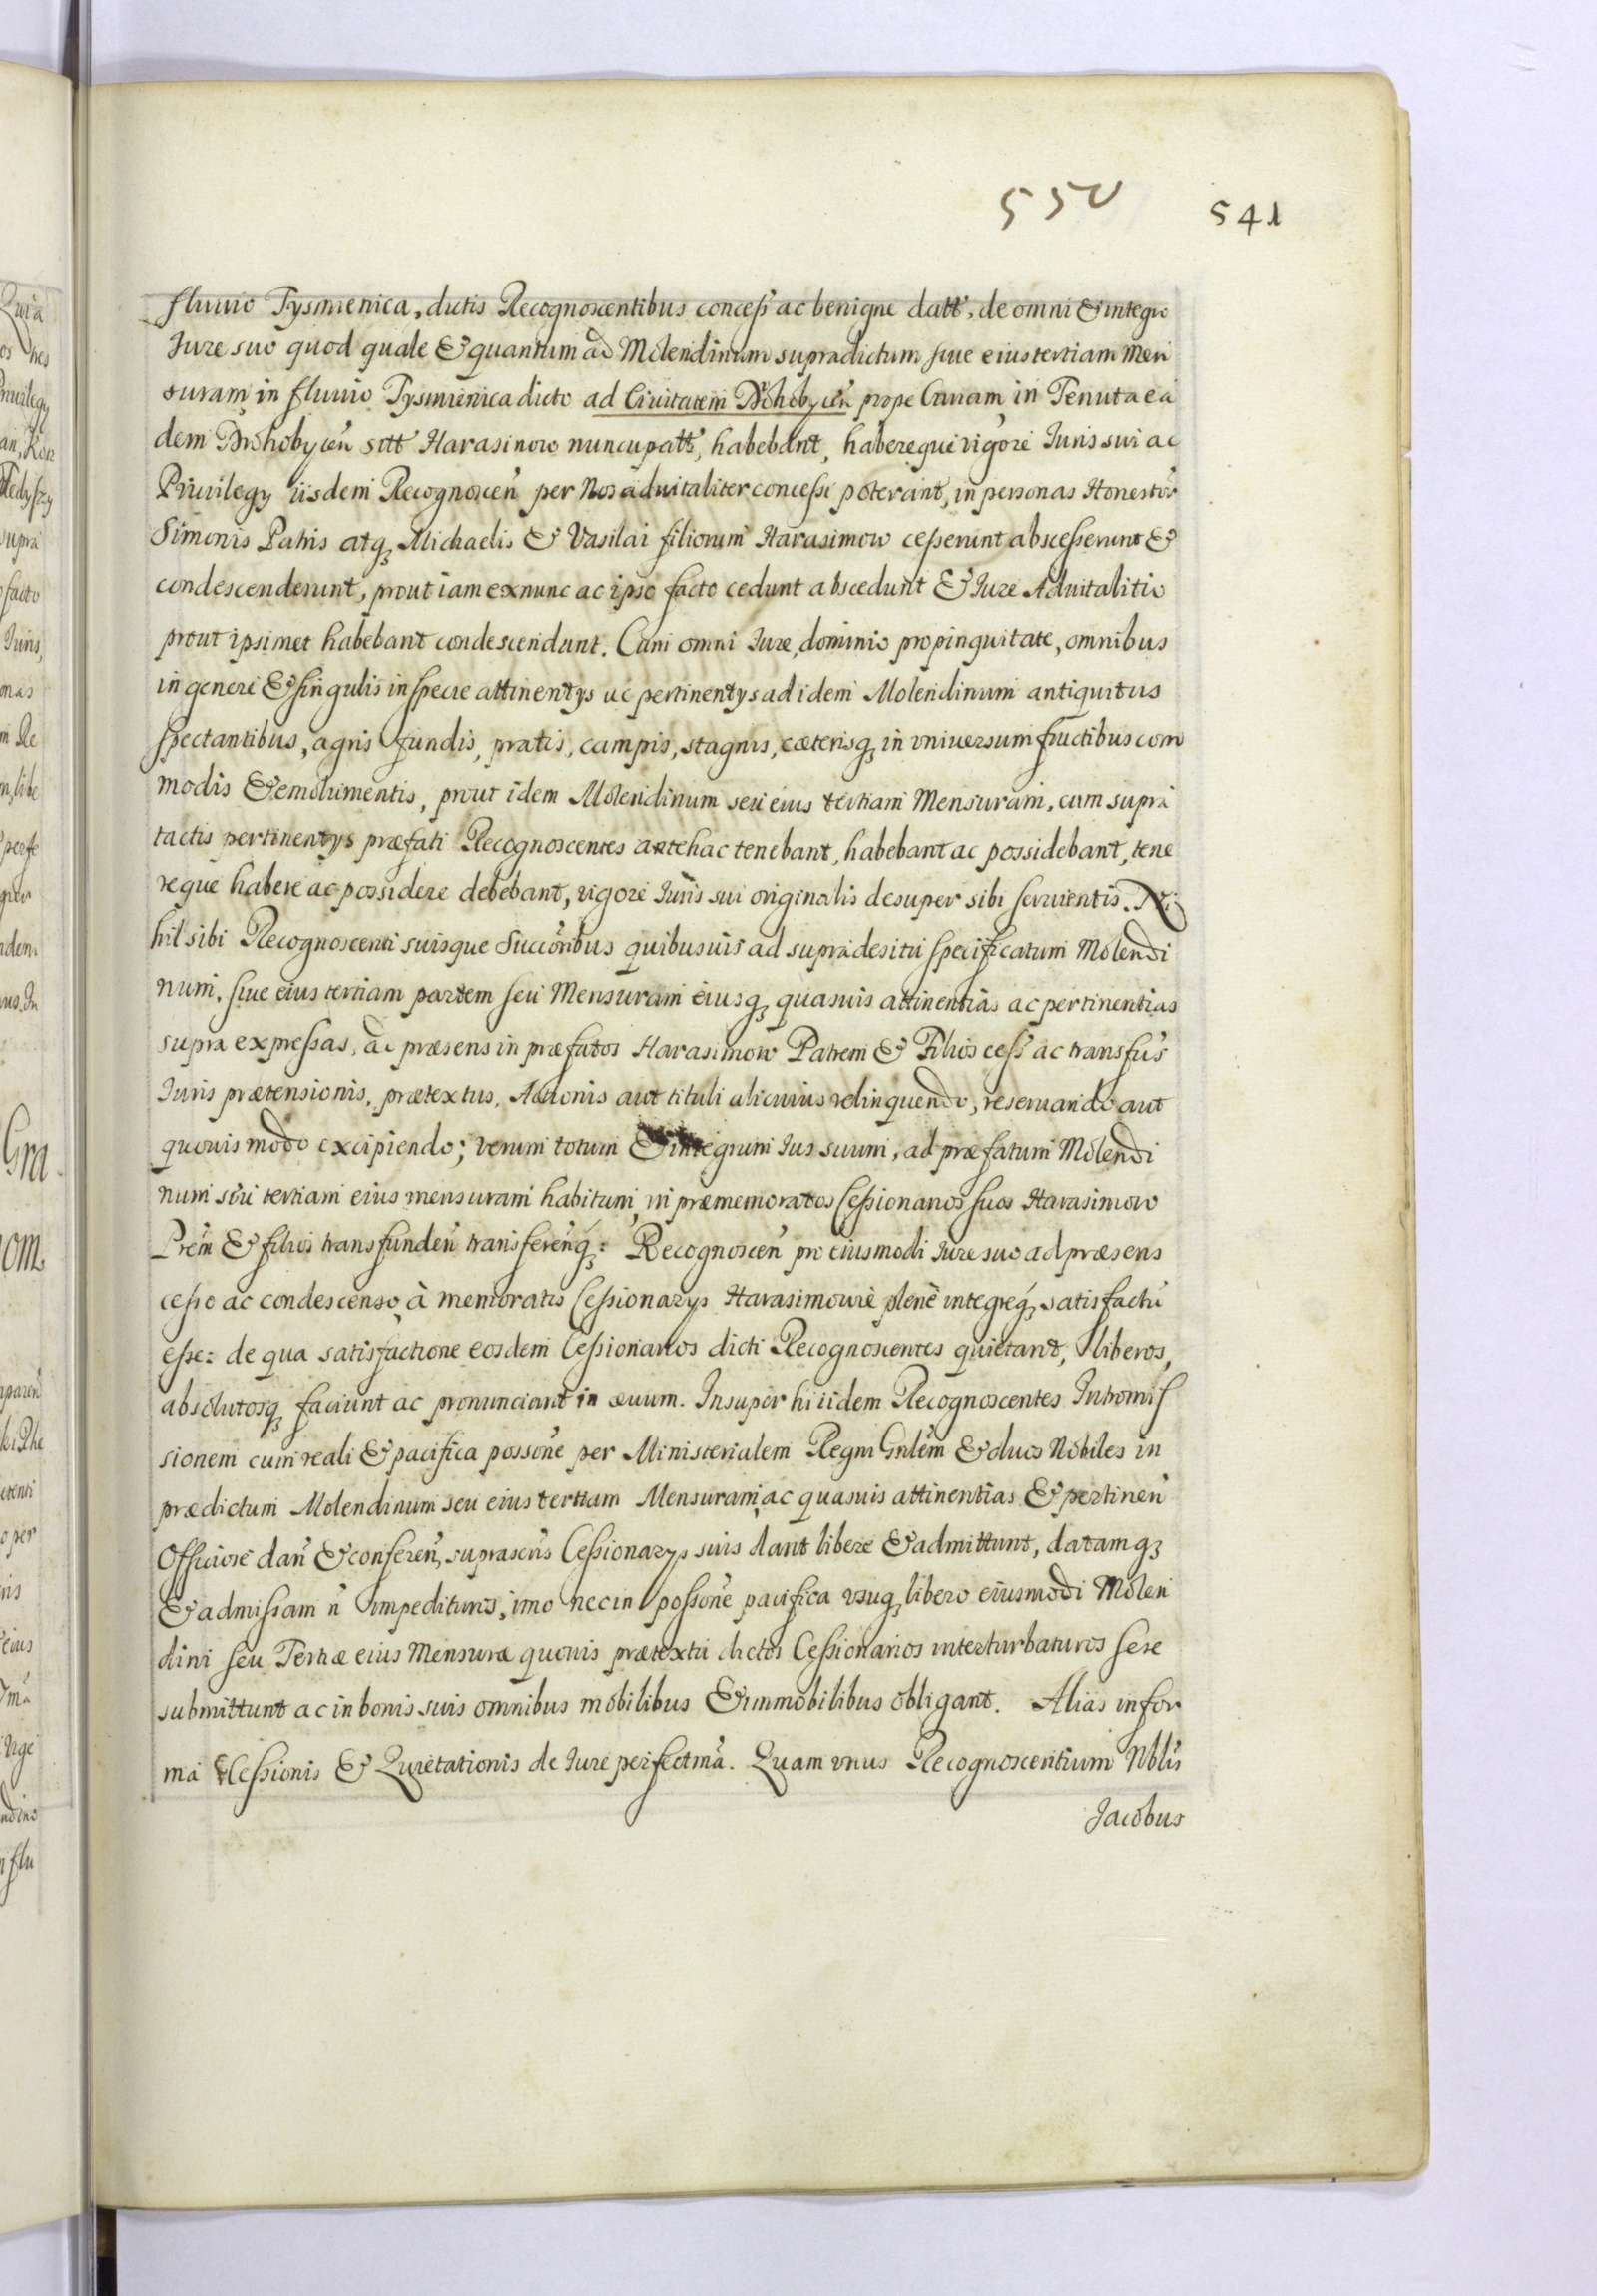 550 541
fluuio Tysmienica, dictis Recognoscentibus concess̃ ac benigne datt̃, de omni & integro
Iure suo quod quale & quantum ad Molendinum supradictum siue eius tertiam Men
suram in fluuio Tysmienica dicto ad Ciuitatem Drohobycen̄ prope Curiam in Tenuta ea
dem Drohobycen̄ sitt̃ Harasimow nuncupatt̃, habebant, habereque vigore Iuris sui ac
Priuilegy iisdem Recognoscen̄ per Nos aduitaliter concessi poterant, in personas Honestor̃
Simonis Patris atq̃ Michaelis & Vasilai filiorum Harasimow cesserunt abscesserunt &
condescenderunt, prout iam ex nunc ac ipso facto cedunt abscedunt & Iure Aduitalitio
prout ipsimet habebant condescendunt. Cum omni Iure, dominio propinquitate, omnibus
in genere & singulis in specie attinentys ac pertinentys ad idem Molendinum antiquitus
spectantibus, agris fundis, pratis, campis, stagnis, cæterisq̃ in vniuersum fructibus com
modis & emolumentis, prout idem Molendinum seu eius tertiam Mensuram, cum supra
tactis pertinentys præfati Recognoscentes antehac tenebant, habebant ac possidebant, tene
reque habere ac possidere debebant, vigore Iuris sui originalis desuper sibi seruientis. Ni
hil sibi Recognoscenti suisque Succōribus quibusuis ad supra de situ specificatum Molendi
num, siue eius tertiam partem seu Mensuram eiusq̃ quasuis attinentias ac pertinentias
supra expressas, ad præsens in præfatos Harasimow Patrem & Filios cess̃ ac transfus̃
Iuris prætensionis, prætextus, Actionis aut tituli alicuius relinquendo, reseruando aut
quouis modo excipiendo; verum totum & integrum Ius suum, ad præfatum Molendi
num siu tertiam eius mensuram habitum, in præmemoratos Cessionarios suos Harasimow
Prēm & filios transfunden̄ transferenq̃: Recognoscen̄ pro eiusmodi Iure suo ad præsens
cesso ac condescenso, à memoratis Cessionarys Harasimowie plenè integreq̃ satisfactū
esse: de qua satisfactione eosdem Cessionarios dicti Recognoscentes quietant, liberos,
absolutosq̃ faciunt ac pronunciant in æuum. Insuper hi iidem Recognoscentes Intromis
sionem cum reali & pacifica possōne per Ministerialem Regni Gñlem & duos Nobiles in
prædictum Molendinum seu eius tertiam Mensuram, ac quasuis attinentias & pertinen̄
Officiose dan̄ & conferen̄, suprascr̃is Cessionarys suis dant libere & admittunt, datamq̃
& admissam n̄ impedituros, imo nec in possōne pacifica vsuq̃ libero eiusmodi Molen
dini seu Tertiæ eius Mensuræ quouis prætextu dictos Cessionarios interturbaturos sese
submittunt ac in bonis suis omnibus mobilibus & immobilibus obligant. Alias in for
ma Cessionis & Quietationis de Iure perfectmā. Quam vnus Recognoscentium Nblis
Jacobus